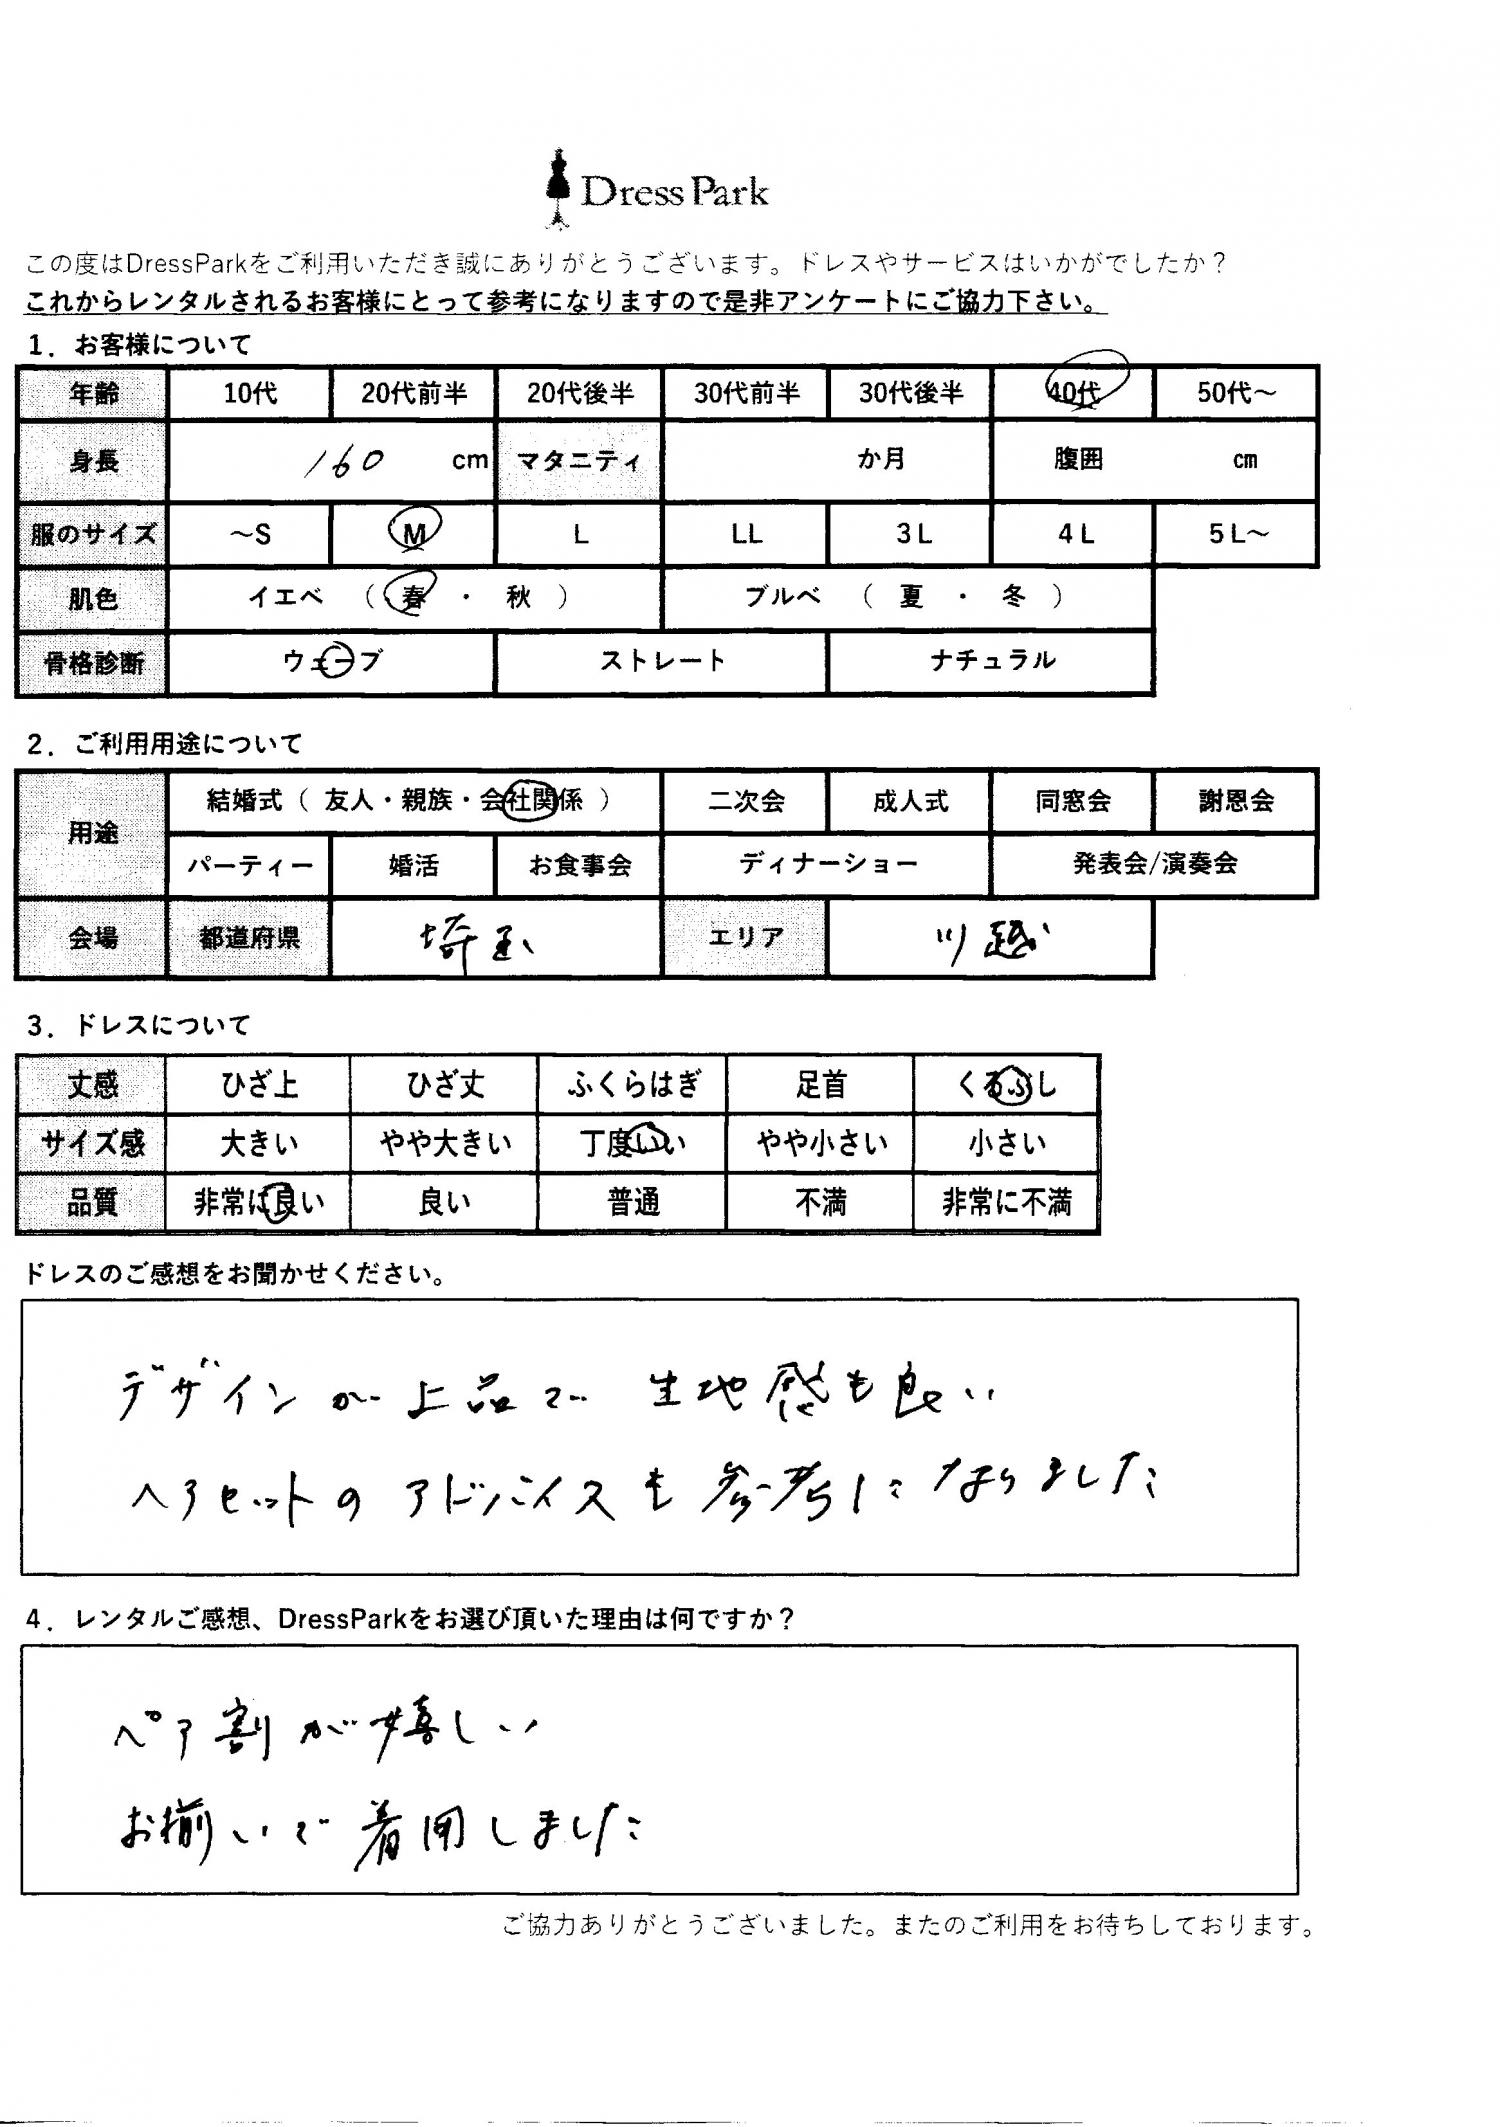 Dress Park
この度はDressParkをご利用いただき誠にありがとうございます。ドレスやサービスはいかがでしたか？
これからレンタルされるお客様にとって参考になりますので是非アンケートにご協力下さい。
1．お客様について
年齢 10代 20代前半 20代後半 30代前半 30代後半 40代 50代～
身長 160 cm マタニティ か月 腹囲 cm
服のサイズ ～S M L LL 3L 4L 5L～
肌色 イエベ （ 春 ・ 秋 ） ブルベ （ 夏 ・ 冬 ）
骨格診断 ウェーブ ストレート ナチュラル
2．ご利用用途について
用途 結婚式（ 友人・親族・会社関係 ） 二次会 成人式 同窓会 謝恩会
パーティー 婚活 お食事会 ディナーショー 発表会/演奏会
会場 都道府県 埼玉 エリア 川越
3．ドレスについて
丈感 ひざ上 ひざ丈 ふくらはぎ 足首 くるぶし
サイズ感 大きい やや大きい 丁度いい やや小さい 小さい
品質 非常に良い 良い 普通 不満 非常に不満
ドレスのご感想をお聞かせください。
デザインが上品で 生地感も良い
ヘアセットのアドバイスも参考になりました
4．レンタルご感想、DressParkをお選び頂いた理由は何ですか？
ペア割が嬉しい
お揃いで着用しました
ご協力ありがとうございました。またのご利用をお待ちしております。